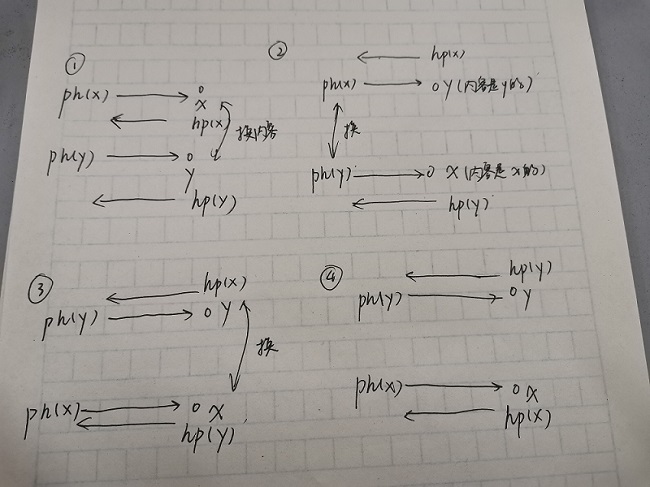 ①
ph(x) → o x
← hp(x)
换内容
ph(y) → o y
← hp(y)
②
← hp(x)
ph(x) → o y (内容是y的)
换
ph(y) → o x (内容是x的)
← hp(y)
③
← hp(x)
ph(y) → o y
换
ph(x) → o x
← hp(y)
④
← hp(y)
ph(y) → o y
ph(x) → o x
← hp(x)